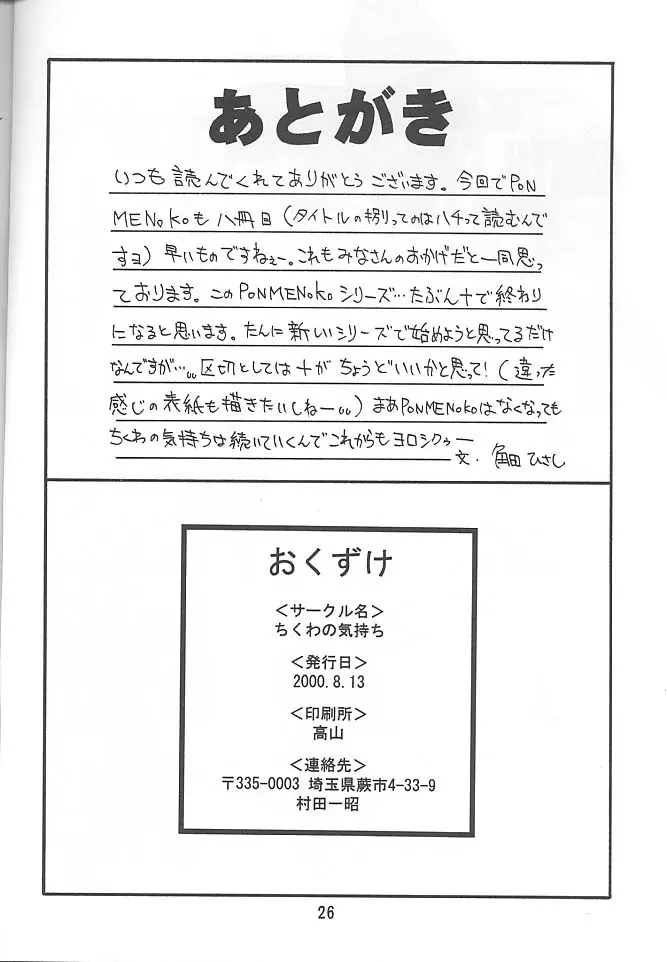 あとがき
いつも読んでくれてありがとうございます。今回でPON
MENoKoも八冊目(タイトルの捌ってのはハチって読むんで
すヨ)早いものですねぇー。これもみなさんのおかげだと一同思っ
ております。このPONMENoKoシリーズ…たぶん十で終わり
になると思います。たんに新しいシリーズで始めようと思ってるだけ
なんですが…。。区切としては十がちょうどいいかと思って!(違った
感じの表紙も描きたいしねー。。)まあPONMENoKoはなくなっても
ちくわの気持ちは続いていくんでこれからもヨロシクゥー
文・角田ひさし
おくずけ
<サークル名>
ちくわの気持ち
<発行日>
2000.8.13
<印刷所>
高山
<連絡先>
〒335-0003 埼玉県蕨市4-33-9
村田一昭
26